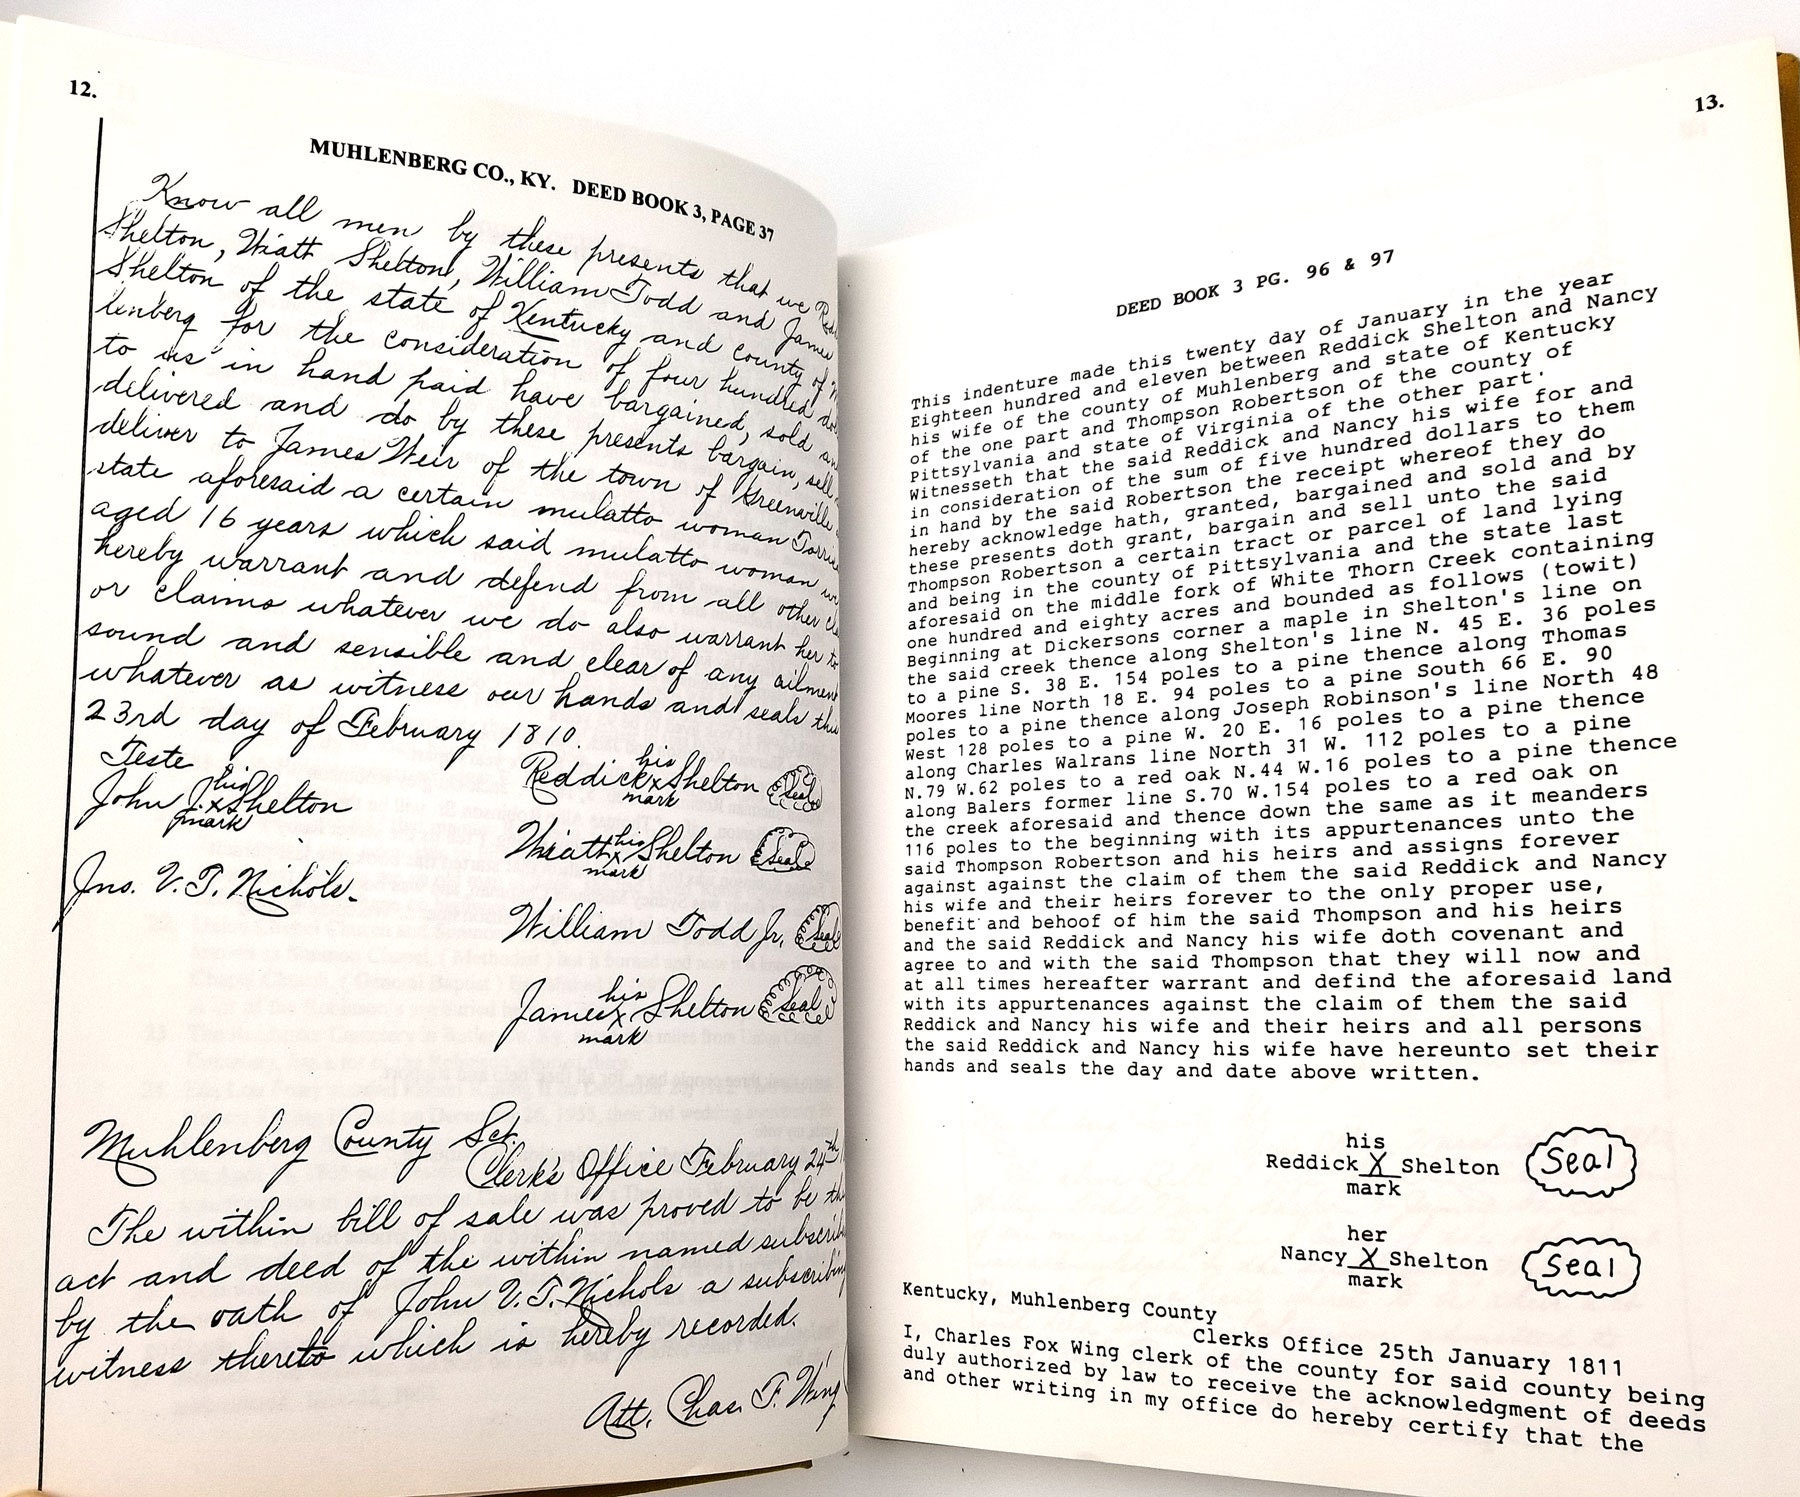 12.
MUHLENBERG CO., KY. DEED BOOK 3, PAGE 37
Know all men by these presents that we
Shelton, Wiatt Shelton, William Todd and James
Shelton of the state of Kentucky and county of
lenberg for the consideration of four hundred
to us in hand paid have bargained, sold
delivered and do by these presents bargain, sell
deliver to James Weir of the town of Greenville
state aforesaid a certain mulatto woman
aged 16 years which said mulatto woman we
hereby warrant and defend from all other
or claims whatever we do also warrant her to
sound and sensible and clear of any ailment
whatever as witness our hands and seals this
23rd day of February 1810.
Teste
his
John J. X Shelton
mark
Jns. V. T. Nichols.
his
Reddick X Shelton Seal
mark
his
Wiatt X Shelton Seal
mark
William Todd Jr. Seal
his
James X Shelton Seal
mark
Muhlenberg County Sct.
Clerk's Office February 24th
The within bill of sale was proved to be the
act and deed of the within named
by the oath of John V. T. Nichols a subscribing
witness thereto which is hereby recorded.
Att. Chas. F. Wing
13.
DEED BOOK 3 PG. 96 & 97
This indenture made this twenty day of January in the year
Eighteen hundred and eleven between Reddick Shelton and Nancy
his wife of the county of Muhlenberg and state of Kentucky
of the one part and Thompson Robertson of the county of
Pittsylvania and state of Virginia of the other part.
Witnesseth that the said Reddick and Nancy his wife for and
in consideration of the sum of five hundred dollars to them
in hand by the said Robertson the receipt whereof they do
hereby acknowledge hath, granted, bargained and sold and by
these presents doth grant, bargain and sell unto the said
Thompson Robertson a certain tract or parcel of land lying
and being in the county of Pittsylvania and the state last
aforesaid on the middle fork of White Thorn Creek containing
one hundred and eighty acres and bounded as follows (towit)
Beginning at Dickersons corner a maple in Shelton's line on
the said creek thence along Shelton's line N. 45 E. 36 poles
to a pine S. 38 E. 154 poles to a pine thence along Thomas
Moores line North 18 E. 94 poles to a pine South 66 E. 90
poles to a pine thence along Joseph Robinson's line North 48
West 128 poles to a pine W. 20 E. 16 poles to a pine thence
along Charles Walrans line North 31 W. 112 poles to a pine
N.79 W.62 poles to a red oak N.44 W.16 poles to a pine thence
along Balers former line S.70 W.154 poles to a red oak on
the creek aforesaid and thence down the same as it meanders
116 poles to the beginning with its appurtenances unto the
said Thompson Robertson and his heirs and assigns forever
against against the claim of them the said Reddick and Nancy
his wife and their heirs forever to the only proper use,
benefit and behoof of him the said Thompson and his heirs
and the said Reddick and Nancy his wife doth covenant and
agree to and with the said Thompson that they will now and
at all times hereafter warrant and defind the aforesaid land
with its appurtenances against the claim of them the said
Reddick and Nancy his wife and their heirs and all persons
the said Reddick and Nancy his wife have hereunto set their
hands and seals the day and date above written.
his
Reddick X Shelton Seal
mark
her
Nancy X Shelton Seal
mark
Kentucky, Muhlenberg County
Clerks Office 25th January 1811
I, Charles Fox Wing clerk of the county for said county being
duly authorized by law to receive the acknowledgment of deeds
and other writing in my office do hereby certify that the